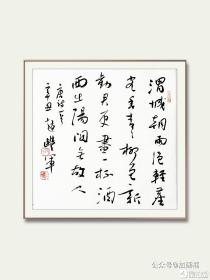 渭城朝雨浥轻塵
客舍青青柳色新
勸君更盡一杯酒
西出陽関無故人
唐诗一首
辛丑
公众号